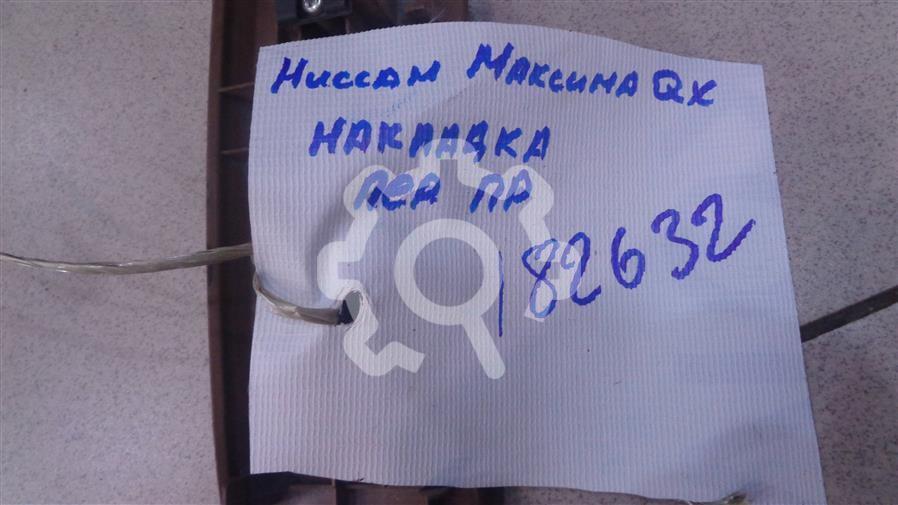 Ниссан Максима QX
НАКЛАДКА
ПЕР ПР
182632